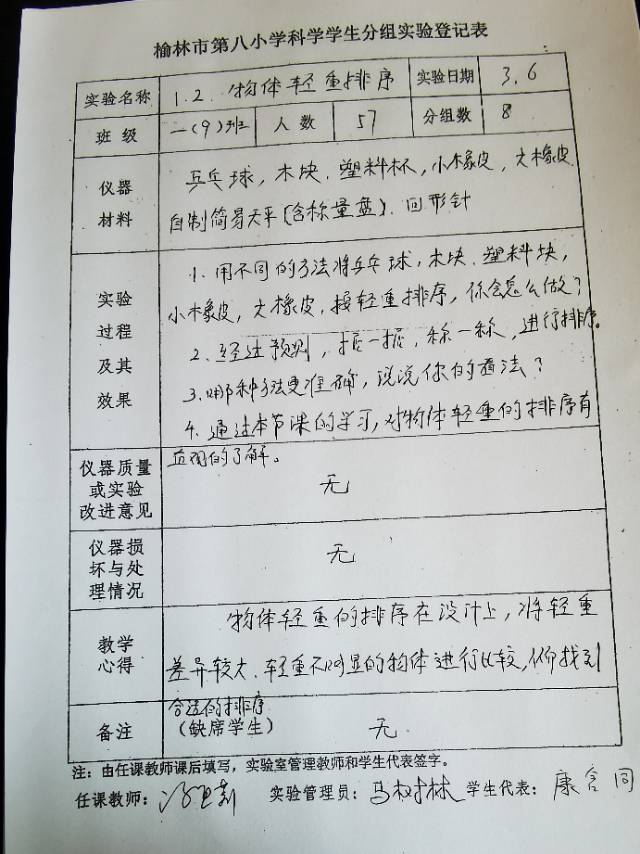 榆林市第八小学科学学生分组实验登记表
实验名称 1.2. 物体轻重排序 实验日期 3.6
班级 二(9)班 人数 57 分组数 8
仪器材料 乒乓球,木块.塑料杯,小橡皮,大橡皮
自制简易天平(含称量盘).回形针
实验过程及其效果 1.用不同的方法将乒乓球,木块.塑料块,
小橡皮,大橡皮,按轻重排序,你会怎么做?
2.经过预测,掂一掂,称一称,进行排序。
3.哪种方法更准确,说说你的看法?
4.通过本节课的学习,对物体轻重的排序有
的了解。
仪器质量或实验改进意见 无
仪器损坏与处理情况 无
教学心得 物体轻重的排序在设计上,将轻重
差异较大.轻重不明显的物体进行比较,找到
合适的排序
备注 (缺席学生) 无
注:由任课教师课后填写,实验室管理教师和学生代表签字。
任课教师: 实验管理员:马树林 学生代表:康 同